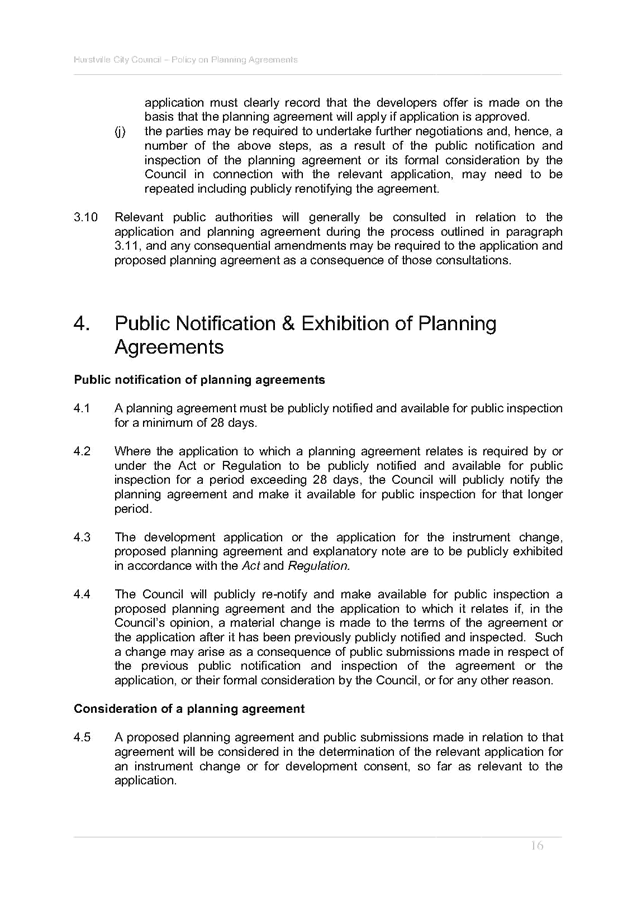 Hurstville City Council – Policy on Planning Agreements
application must clearly record that the developers offer is made on the
basis that the planning agreement will apply if application is approved.
(j) the parties may be required to undertake further negotiations and, hence, a
number of the above steps, as a result of the public notification and
inspection of the planning agreement or its formal consideration by the
Council in connection with the relevant application, may need to be
repeated including publicly renotifying the agreement.
3.10 Relevant public authorities will generally be consulted in relation to the
application and planning agreement during the process outlined in paragraph
3.11, and any consequential amendments may be required to the application and
proposed planning agreement as a consequence of those consultations.
4. Public Notification & Exhibition of Planning
Agreements
Public notification of planning agreements
4.1 A planning agreement must be publicly notified and available for public inspection
for a minimum of 28 days.
4.2 Where the application to which a planning agreement relates is required by or
under the Act or Regulation to be publicly notified and available for public
inspection for a period exceeding 28 days, the Council will publicly notify the
planning agreement and make it available for public inspection for that longer
period.
4.3 The development application or the application for the instrument change,
proposed planning agreement and explanatory note are to be publicly exhibited
in accordance with the Act and Regulation.
4.4 The Council will publicly re-notify and make available for public inspection a
proposed planning agreement and the application to which it relates if, in the
Council's opinion, a material change is made to the terms of the agreement or
the application after it has been previously publicly notified and inspected. Such
a change may arise as a consequence of public submissions made in respect of
the previous public notification and inspection of the agreement or the
application, or their formal consideration by the Council, or for any other reason.
Consideration of a planning agreement
4.5 A proposed planning agreement and public submissions made in relation to that
agreement will be considered in the determination of the relevant application for
an instrument change or for development consent, so far as relevant to the
application.
16